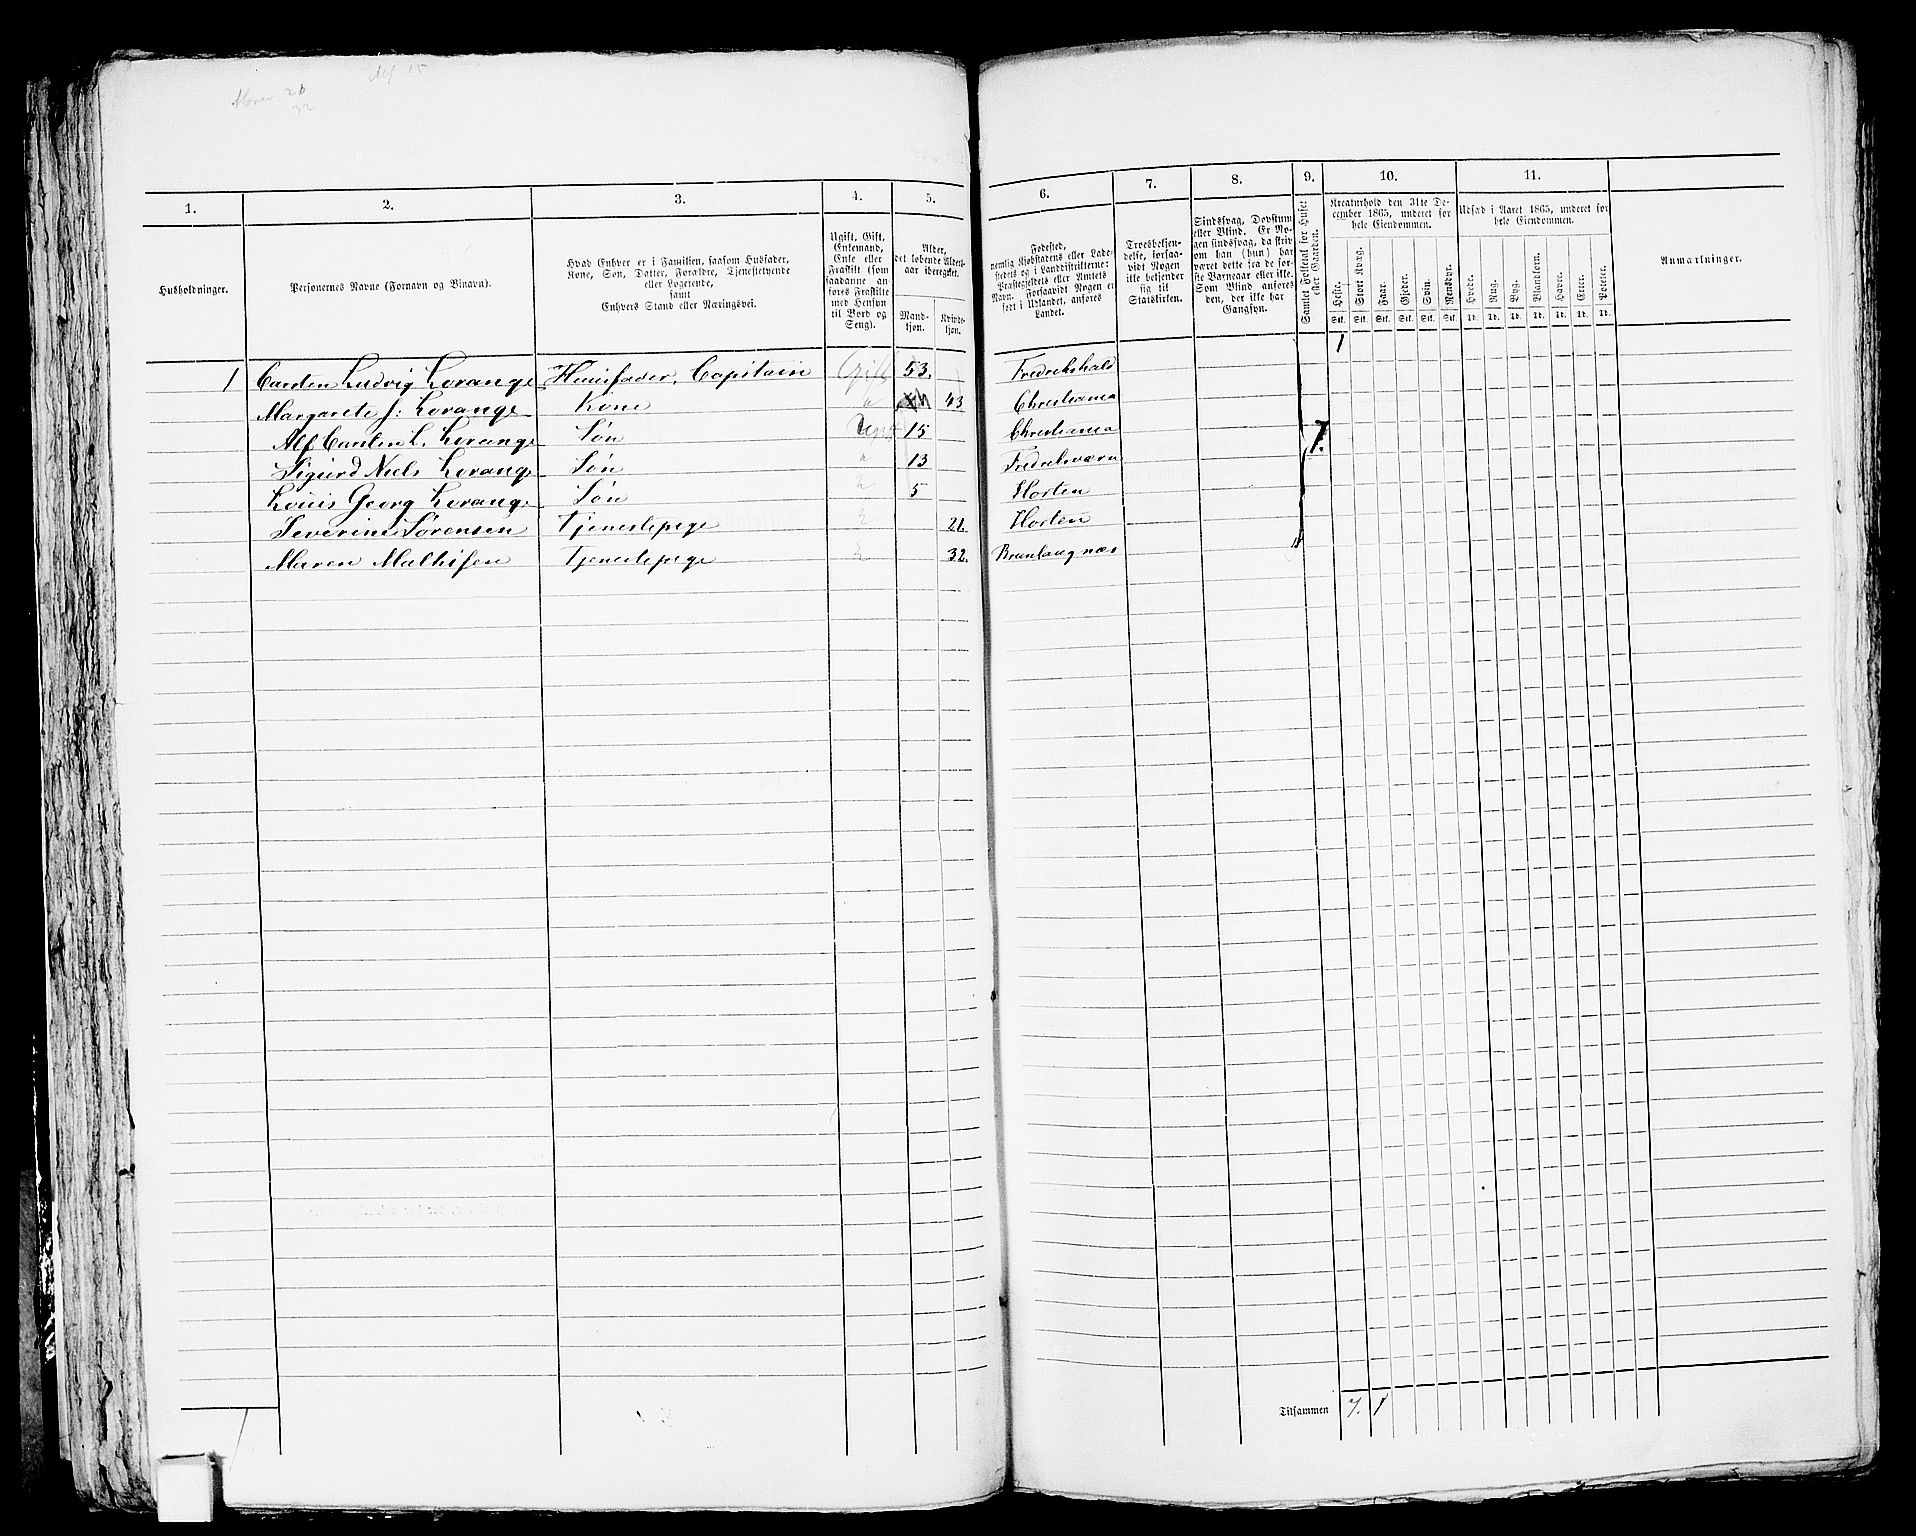 Alf 15
Maren 21
32
1.
2.
3.
4.
5.
6.
7.
8.
9.
10.
11.
Husholdninger.
Personernes Navne (Fornavn og Binavn).
Hvad Enhver er i Familien, saasom Husfader,
Kone, Søn, Datter, Forældre, Tjenestetyende
eller Logerende,
samt
Enhvers Stand eller Næringsvei.
Ugift, Gift,
Enkemand,
Enke eller
Fraskilt (som
saadanne an-
føres Fraskilte
med Hensyn
til Bord og
Seng).
Alder,
det løbende Alders-
aar iberegnet.
Mand-
kjøn.
Kvinde-
kjøn.
Fødested,
nemlig Kjøbstadens eller Lade-
stedets og i Landdistrikterne:
Præstegjeldets eller Amtets
Navn. Forsaavidt Nogen er
født i Udlandet, anføres
Landet.
Troesbekjen-
delse, forsaa-
vidt Nogen
ikke bekjender
sig til
Statskirken.
Sindssvag, Døvstum
eller Blind. Er No-
gen sindssvag, da skriv
om han (hun) har
været dette fra de før-
ste Barneaar eller ikke.
Som Blind anføres
den, der ikke har
Gangsyn.
Samlet Folketal for Huset
eller Gaarden.
Kreaturhold den 31te De-
cember 1865, underet for
hele Eiendommen.
Heste.
Stort Kvæg.
Faar.
Gjeder.
Svin.
Rensdyr.
Stk. Stk. Stk. Stk. Stk. Stk.
Udsæd i Aaret 1865, underet for
hele Eiendommen.
Hvede.
Rug.
Byg.
Blandkorn.
Havre.
Erter.
Poteter.
Td. Td. Td. Td. Td. Td. Td.
Anmærkninger.
1 Carsten Ludvig Lorange Huusfader, Capitain Gift 53. Fredrikshald 1
Margarete J: Lorange Kone " 43 Christiania
Alf Carsten L. Lorange Søn Ugift 15 Christiania 7.
Sigurd Niels Lorange Søn " 13 Fredriksværn
Louis Georg Lorange Søn " 5 Horten
Severine Sørensen Tjenestepige " 21. Horten
Maren Mathisen Tjenestepige " 32. Brunlaugnæs
1
Tilsammen 7. 1